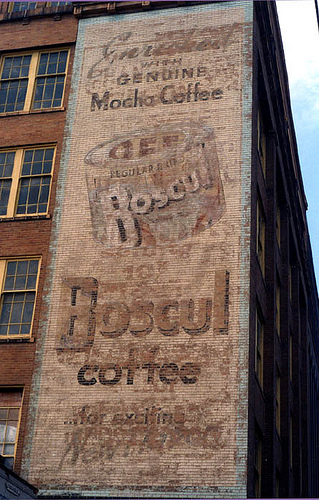 Enriched
WITH
GENUINE
Mocha Coffee
REGULAR GRIND
Boscul
Boscul
coffee
...for exciting